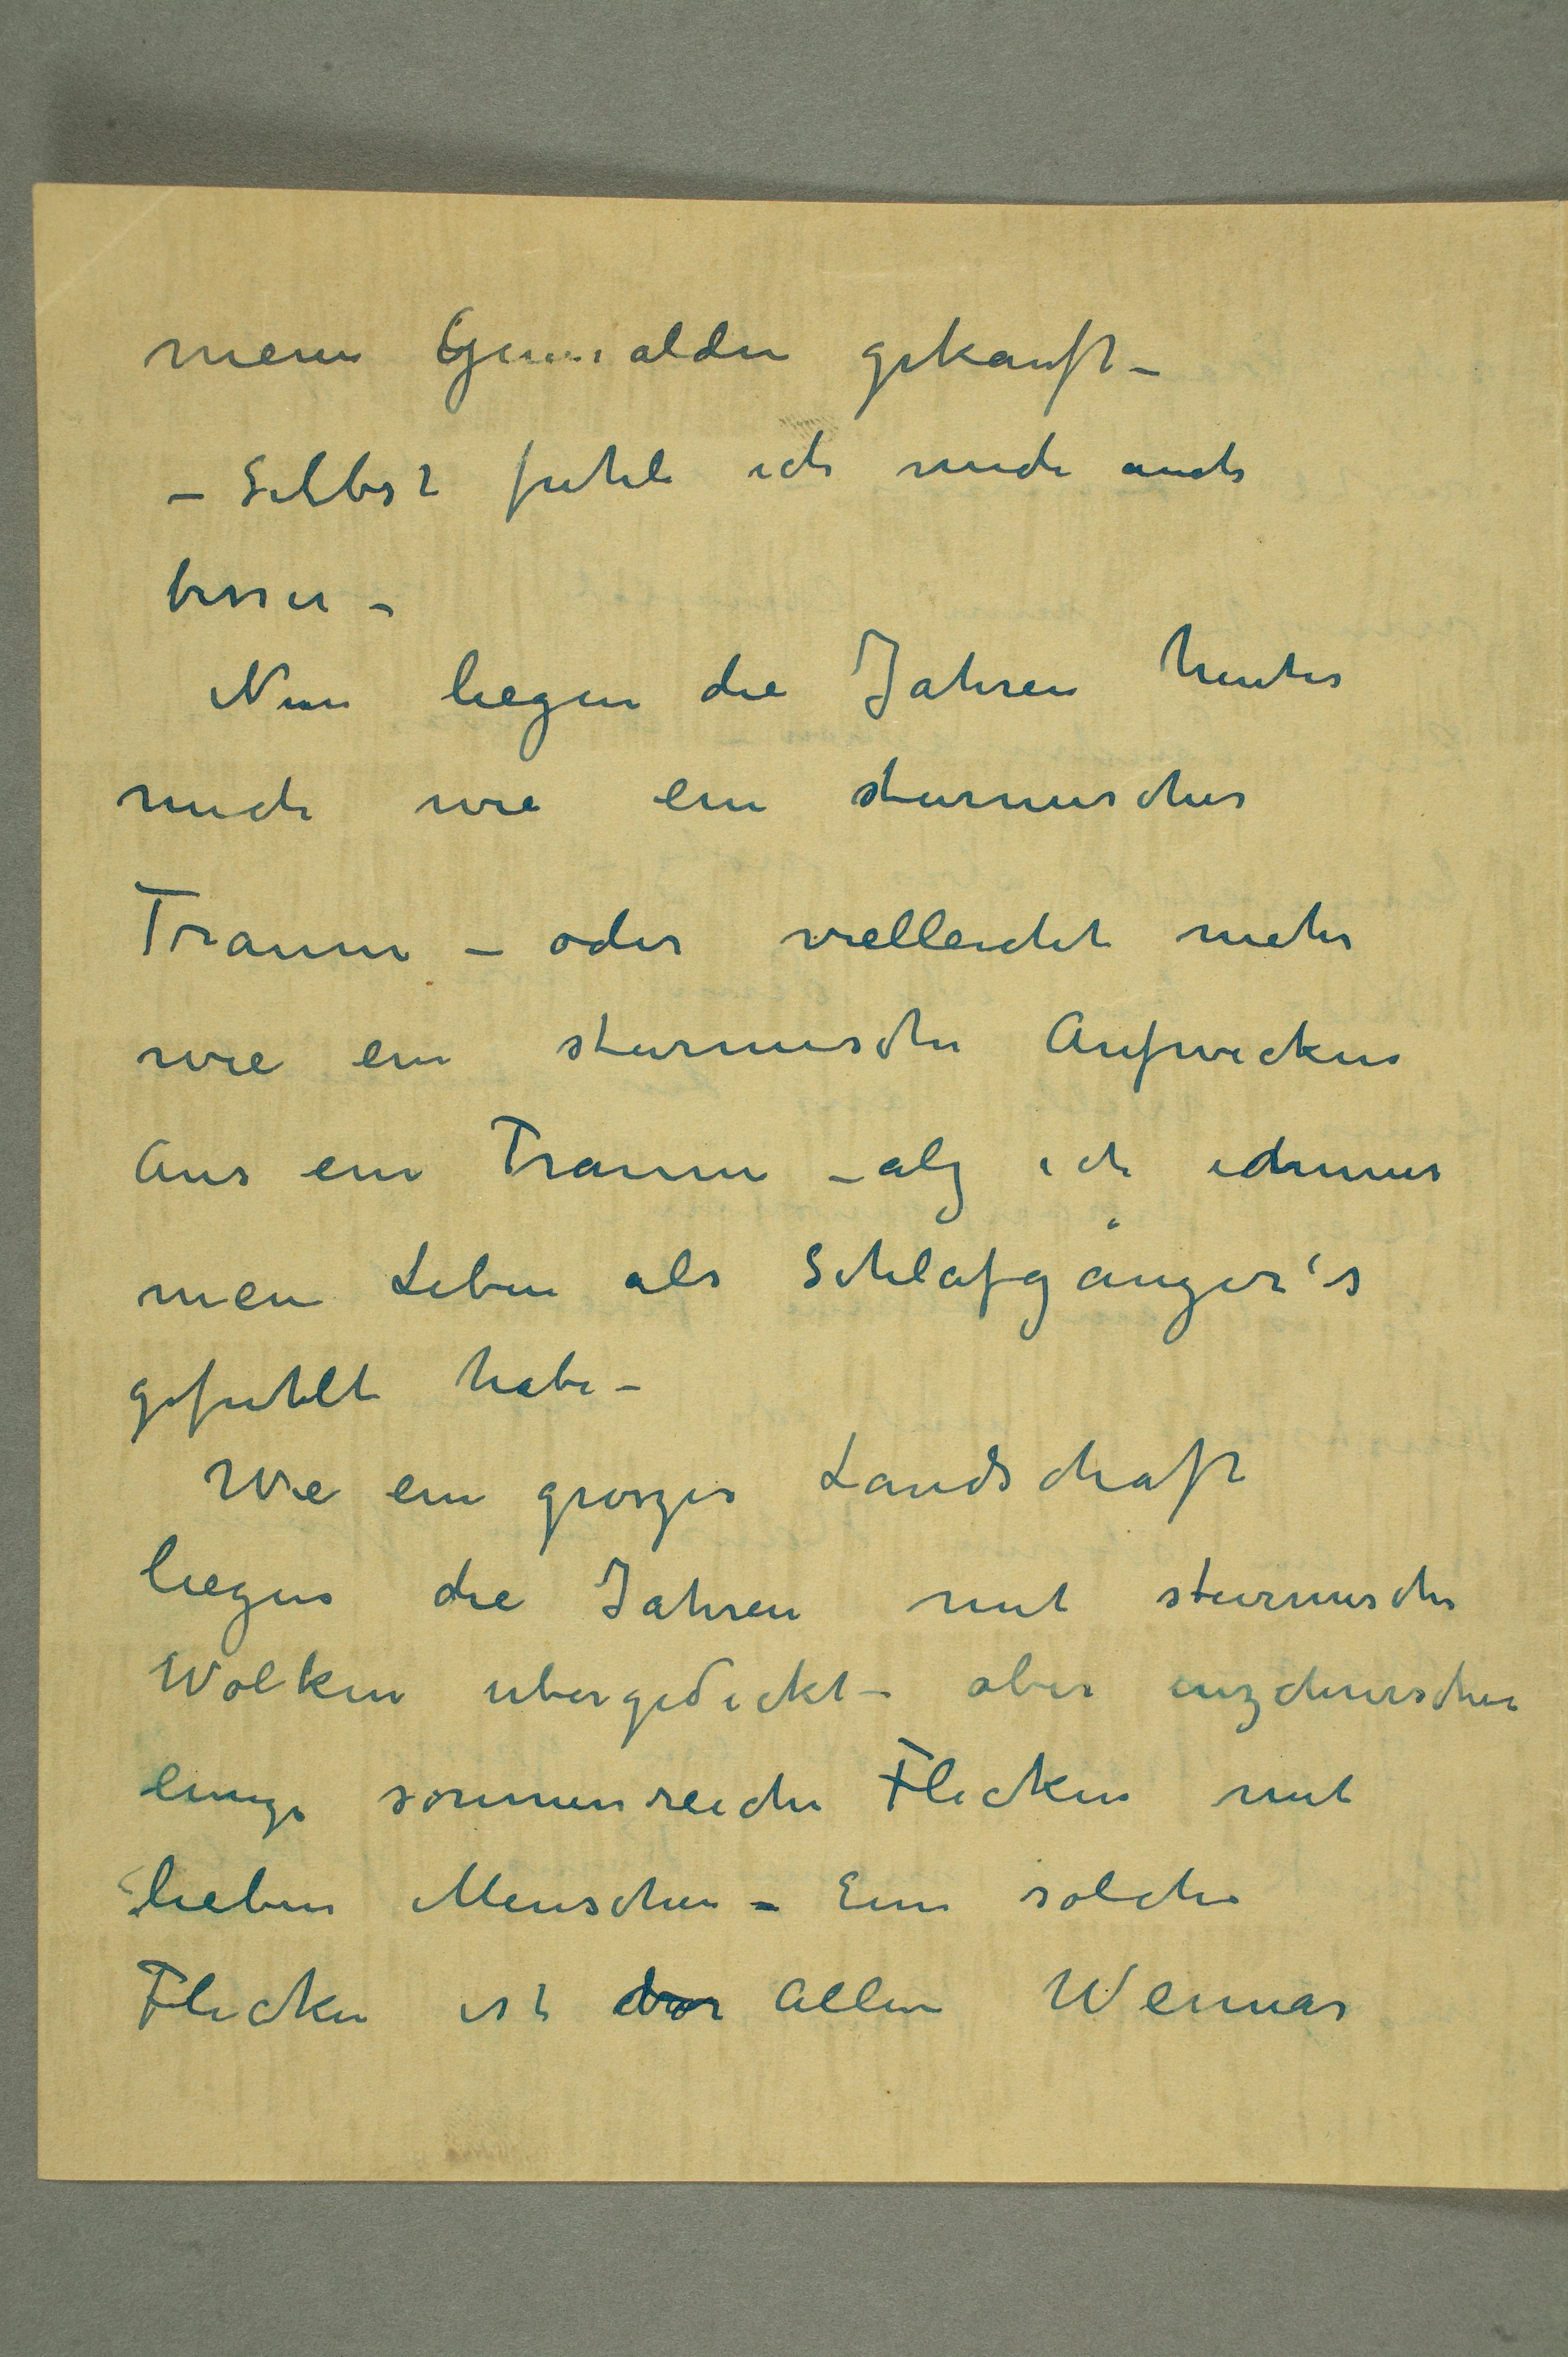 meine Gemälden gekauft –
– Selbst fuhle ich mich auch
besser –
Nun liegen die Jahren hinter
mich wie ein sturmischer
Traum – oder vielleicht mehr
wie ein sturmische Aufwecken
Aus ein Traum – als ich immer
mein Leben als Schlafgänger's
gefuhlt habe –
Wie ein groszer Landschaft
liegen die Jahren mit sturmische
Wolken ubergedeckt – aber inzchwischen
einige sonnenreiche Flecken mit
lieben Menschen – Eine solche
Flecken ist vor Allem Weimar